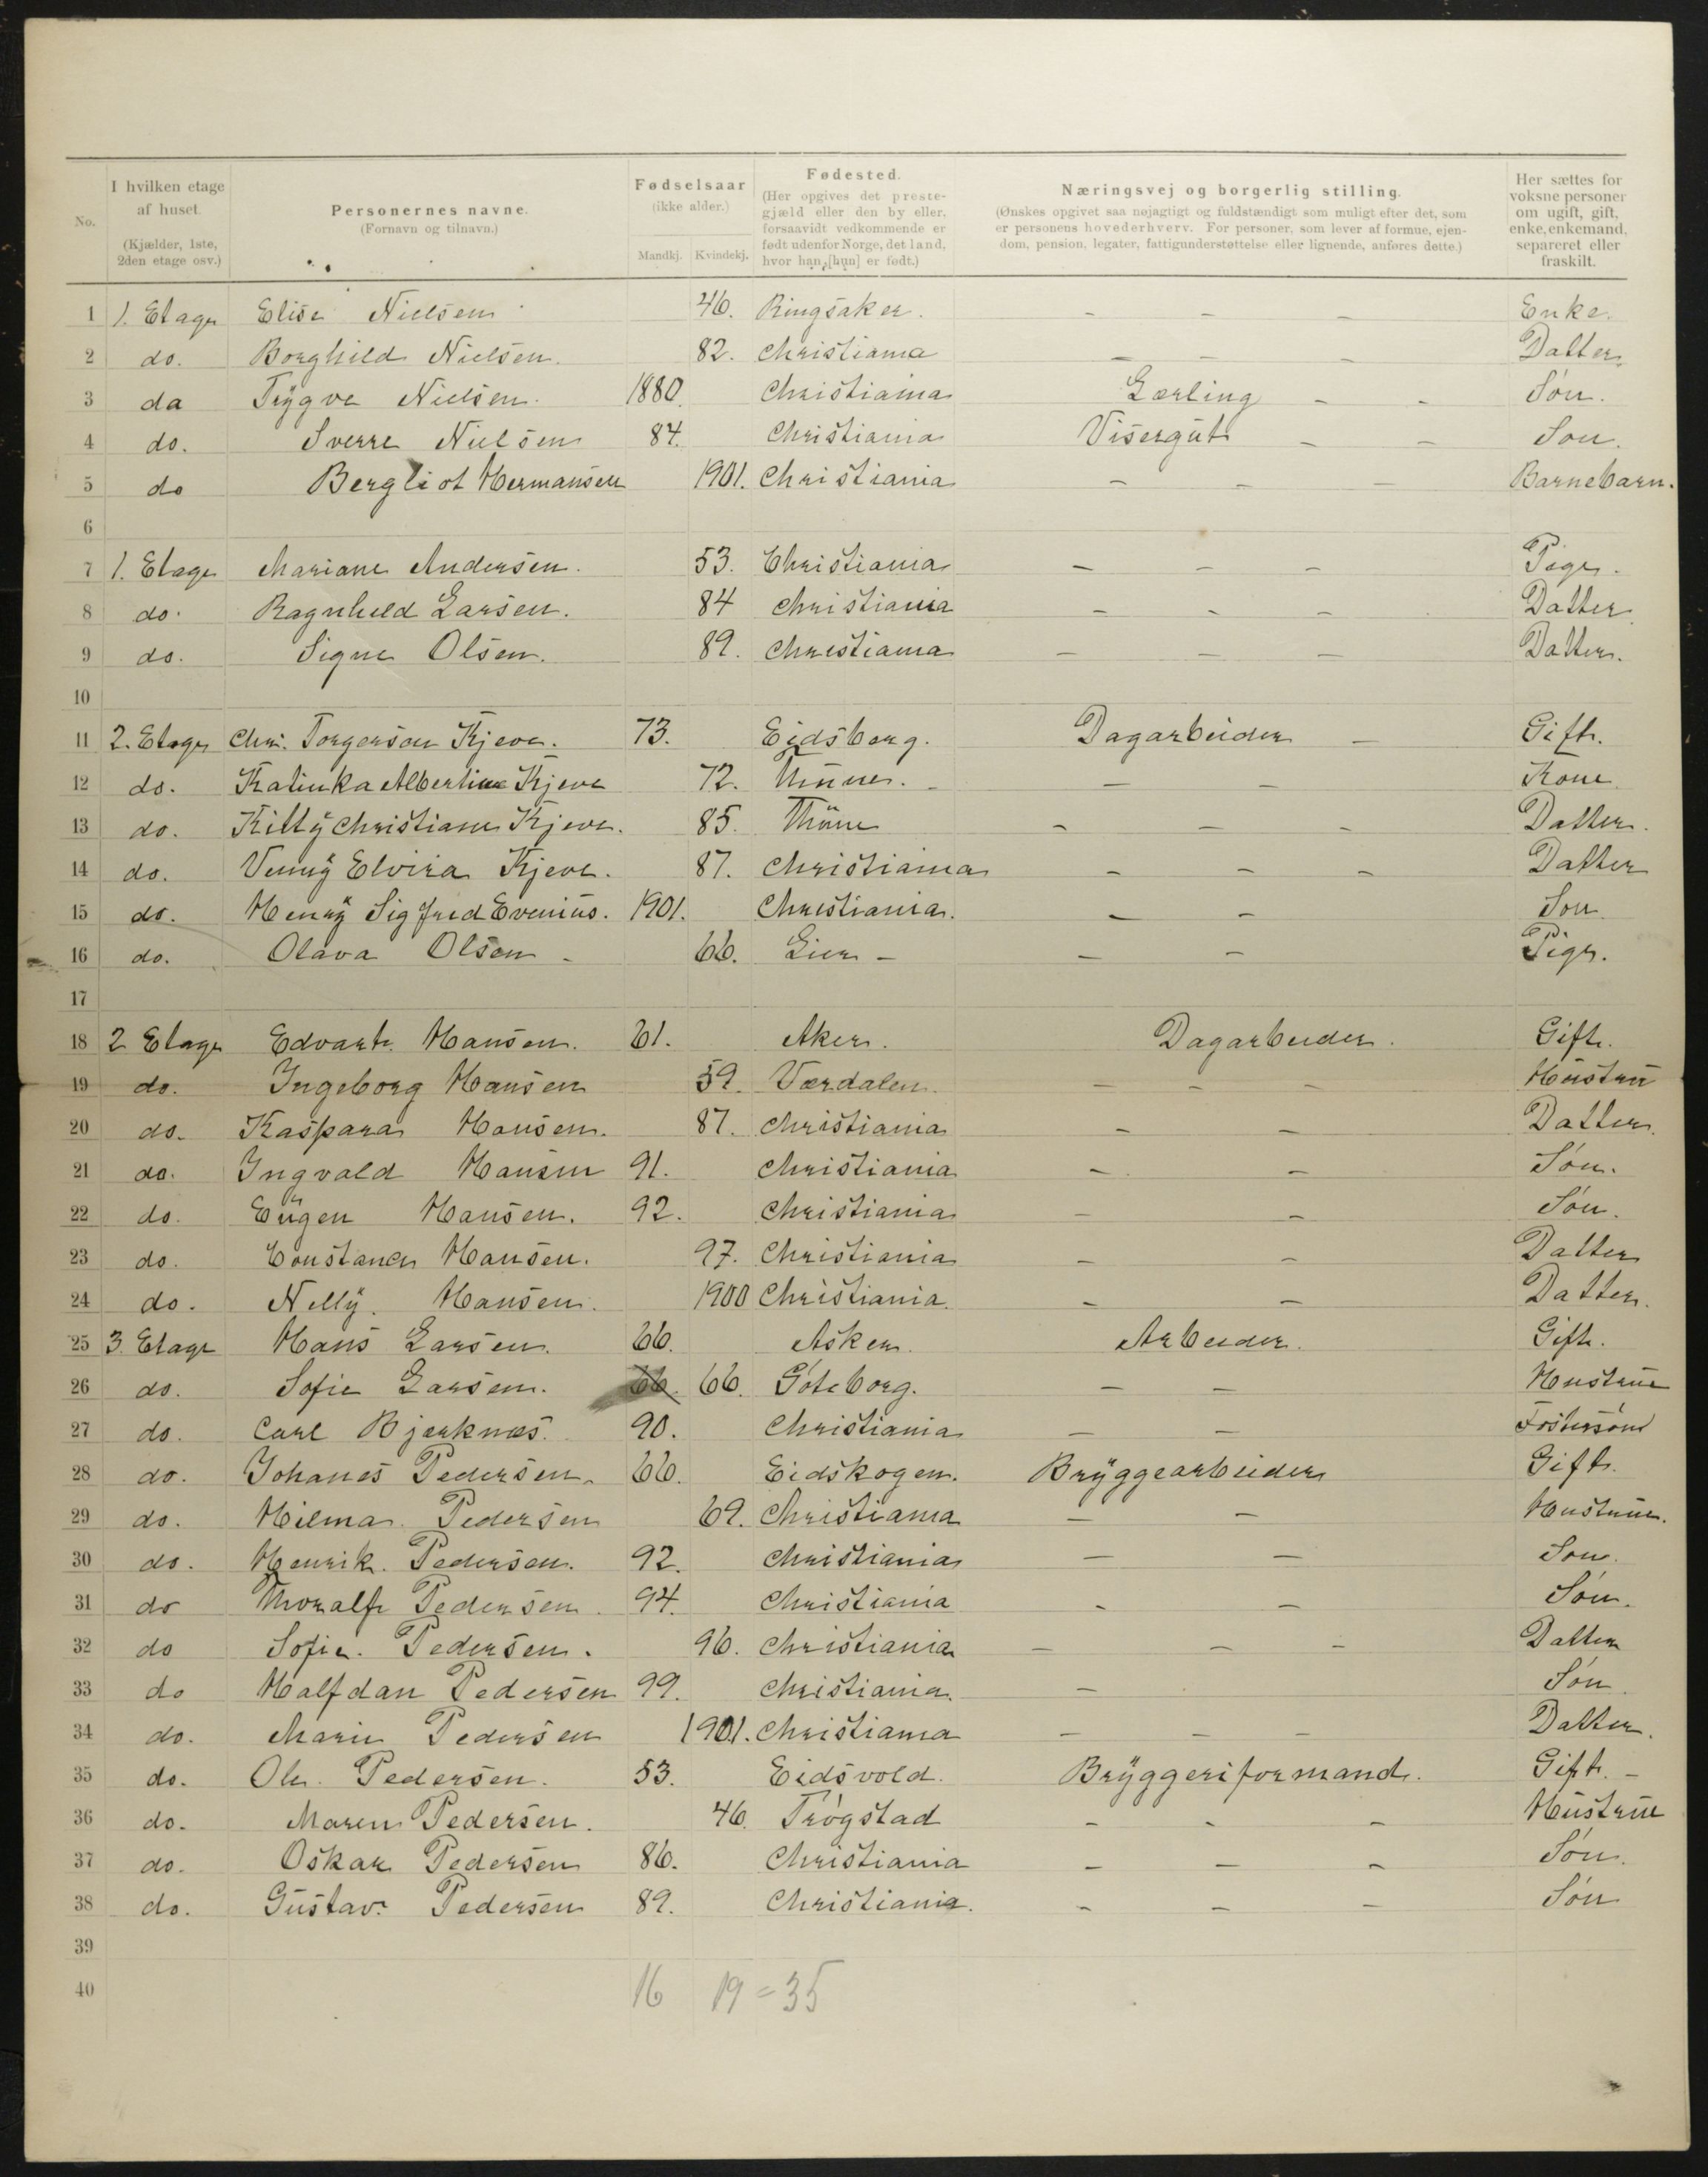 No.
I hvilken etage af huset. (Kjælder, 1ste, 2den etage osv.)
Personernes navne. (Fornavn og tilnavn.)
Fødselsaar (ikke alder.) Mandkj. Kvindekj.
Fødested. (Her opgives det prestegjæld eller den by eller, forsaavidt vedkommende er født udenfor Norge, det land, hvor han [hun] er født.)
Næringsvej og borgerlig stilling. (Ønskes opgivet saa nøjagtigt og fuldstændigt som muligt efter det, som er personens hovederhverv. For personer, som lever af formue, ejendom, pension, legater, fattigunderstøttelse eller lignende, anføres dette.)
Her sættes for voksne personer om ugift, gift, enke, enkemand, separeret eller fraskilt.
1 1. Etage Elise Nielsen 46. Ringsaker. - - - Enke.
2 do. Borghild Nielsen. 82. Christiania - - - Datter
3 do Trygve Nielsen. 1880. Christiania Lærling - - Søn.
4 do. Sverre Nielsen 84. Christiania Visergut - - Søn.
5 do Bergliot Hermansen 1901. Christiania - - - Barnebarn.
6
7 1. Etage Mariane Andersen. 53. Christiania - - - Pige.
8 do. Ragnhild Larsen. 84 Christiania - - - Datter
9 do. Signe Olsen. 89. Christiania - - - Datter.
10
11 2. Etage Chr. Torgersen Kjeve. 73. Eidsberg. Dagarbeider - Gift.
12 do. Katinka Albertine Kjeve 72. - - - Kone
13 do. Kitty Christiane Kjeve. 85. - - - Datter.
14 do. Venny Elvira Kjeve. 87. Christiania - - - Datter
15 do. Henry Sigfred Evenius. 1901. Christiania. - - Søn
16 do. Olava Olsen - 66. Lier - - - Pige.
17
18 2 Etage Edvart Hansen. 61. Aker. Dagarbeider. Gift.
19 do. Ingeborg Hansen 59. Værdalen. - - - Hustru
20 do. Kaspara Hansen. 87. Christiania - - Datter.
21 do. Ingvald Hansen 91. Christiania - - Søn.
22 do. Eugen Hansen. 92. Christiania - - Søn.
23 do. Constance Hansen. 97. Christiania - - Datter
24 do. Nelly. Hansen. 1900 Christiania. - - Datter.
25 3. Etage Hans Larsen. 66. Asker. Arbeider. Gift.
26 do. Sofie Larsen. 66. 66. Göteborg. - - Hustrue
27 do. Carl Bjerknæs. 90. Christiania - - Fostersønn
28 do. Johanes Pedersen. 66. Eidskogen. Bryggearbeider Gift.
29 do. Hilma Pedersen 69. Christiania - - Hustrue.
30 do. Henrik. Pedersen. 92. Christiania - - Søn.
31 do Thoralf Pedersen. 94. Christiania - - Søn.
32 do Sofie. Pedersen. 96. Christiania - - - Datter
33 do Halfdan Pedersen 99. Christiania. - Søn.
34 do. Marie Pedersen 1901. Christiania - - - Datter.
35 do. Ole. Pedersen. 53. Eidsvold. Bryggeriformand. Gift. -
36 do. Maren Pedersen. 46. Trøgstad - - - Hustrue
37 do. Oskar Pedersen 86. Christiania - - - Søn.
38 do. Gustav. Pedersen 89. Christiania. - - - Søn
39
40 16 19 = 35